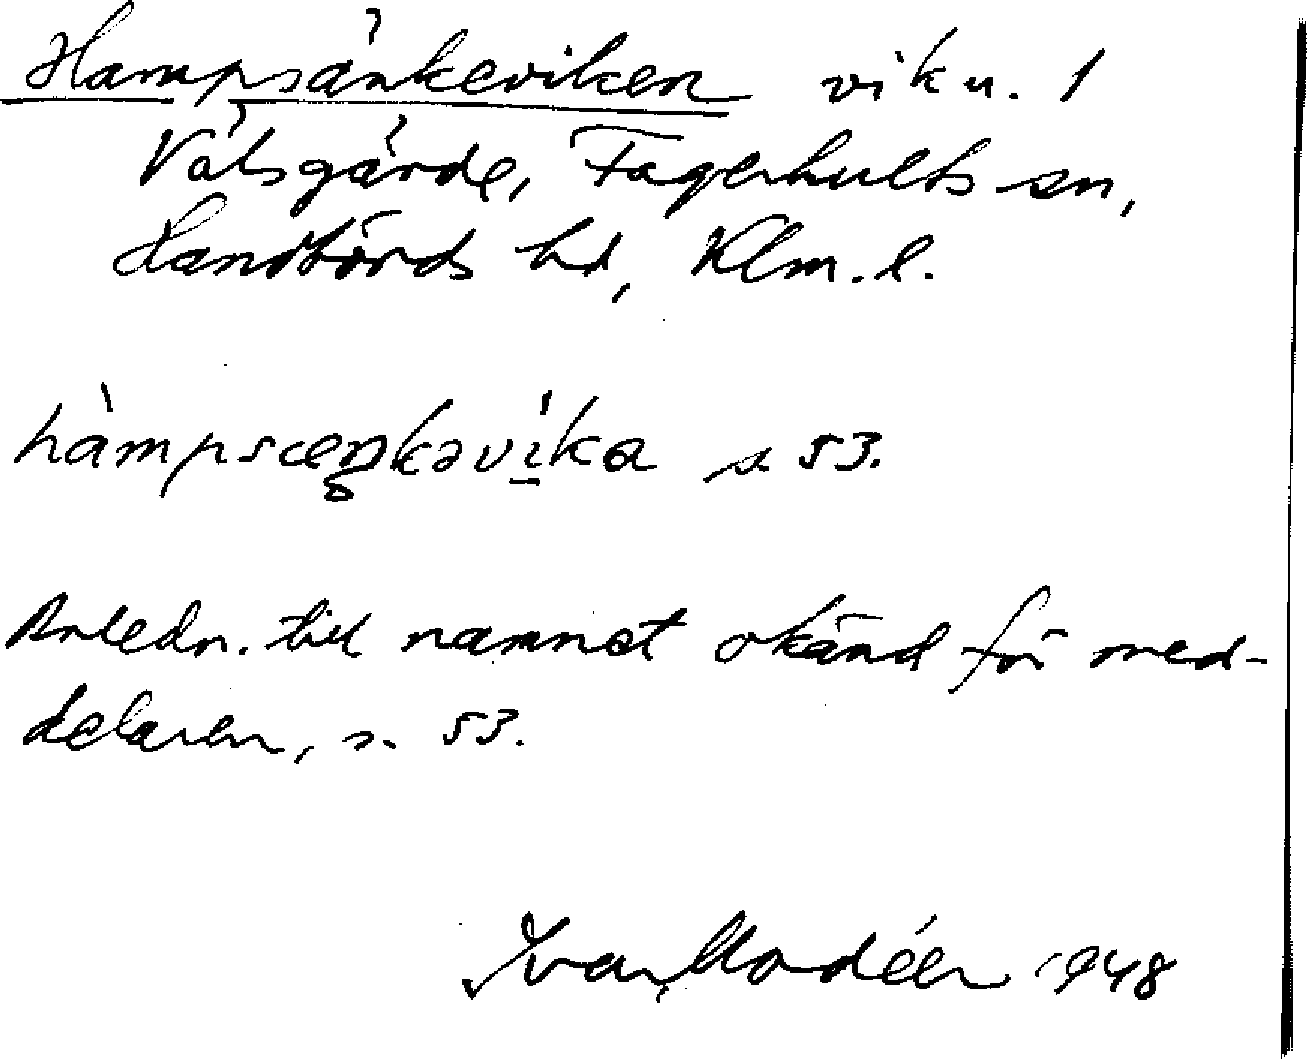 Hampsänkeviken vik u. 1
Välsgärde, Fagerhults sn,
Handbörds hd, Klm. l.
hàmpsæŋkəvika s. 53.
Anledn. till namnet okänd för med-
delaren, s. 53.
Ivar Modéer 1948